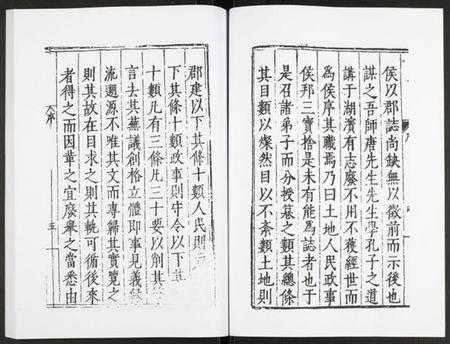 侯以郡誌尚缺無以徵前而示後也
謀之吾師唐先生先生學孔子之道
講于湖濱有志廢不用不獲經世而
為侯序其職焉乃曰土地人民政事
侯邦三寶捨是未有能為誌者也于
是召諸弟子而分授墓之類其總條
其目類以燦然目以不紊類土地則
郡建以下其條十類人民則
下其條十類政事則守令以下其
十類凡有三條凡三十要以削其
言去其蕪議創格立體即事見義
流遡源不唯其文而專歸其實覽之
則其故在目求之則其軌可循後來
者得之而因革之宜廢舉之當悉由
序
五